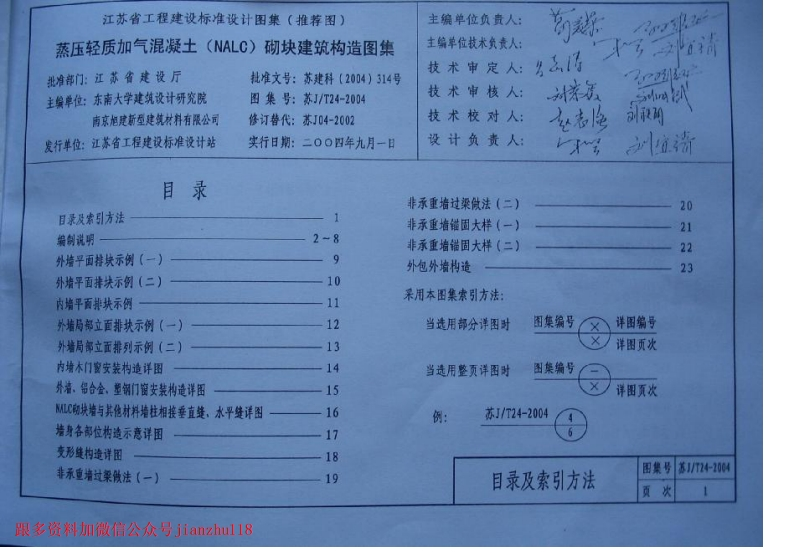 江苏省工程建设标准设计图集（推荐图）
蒸压轻质加气混凝土（NALC）砌块建筑构造图集
批准部门：江苏省建设厅
批准文号：苏建科（2004）314号
主编单位：东南大学建筑设计研究院
图集号：苏J/T24-2004
南京旭建新型建筑材料有限公司
修订替代：苏J04-2002
发行单位：江苏省工程建设标准设计站
实行日期：二○○四年九月一日
主编单位负责人：
主编单位技术负责人：
技术审定人：
技术审核人：
技术校对人：
设计负责人：
目录
目录及索引方法 1
编制说明 2~8
外墙平面排块示例（一） 9
外墙平面排块示例（二） 10
内墙平面排块示例 11
外墙局部立面排块示例（一） 12
外墙局部立面排列示例（二） 13
内墙木门窗安装构造详图 14
外墙、铝合金、塑钢门窗安装构造详图 15
NALC砌块墙与其他材料墙柱相接垂直缝、水平缝详图 16
墙身各部位构造示意详图 17
变形缝构造详图 18
非承重墙过梁做法（一） 19
非承重墙过梁做法（二） 20
非承重墙锚固大样（一） 21
非承重墙锚固大样（二） 22
外包外墙构造 23
采用本图集索引方法：
当选用部分详图时 图集编号 × 详图编号
× 详图页次
当选用整页详图时 图集编号 —
× 详图页次
例： 苏J/T24-2004 4
6
目录及索引方法
图集号 苏J/T24-2004
页次 1
跟多资料加微信公众号jianzhu118